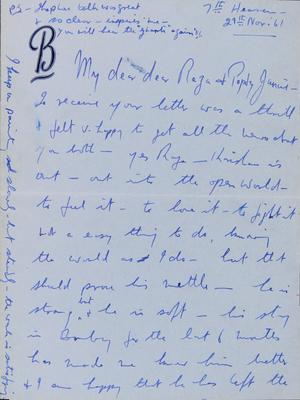 PS - Stephen talk was great
& so clear - inspires me -
you will hear the "ghosts" again!!
7th Heaven -
29th Nov. 61
B
My dear dear Raza &
To receive your letter was a thrill
& felt v. happy to get all the news about
you both - yes Raza - Krishan is
out - out into the open world -
to feel it - to love it - to fight it
not a easy thing to do, knowing
the world as I do - but that
should prove his mettle - he is
strong, but he is soft - his stay
in Bombay for the last 6 months
has made me know him better
& I am happy that he has left the
I keep on painting, slowly - but steady - the work is